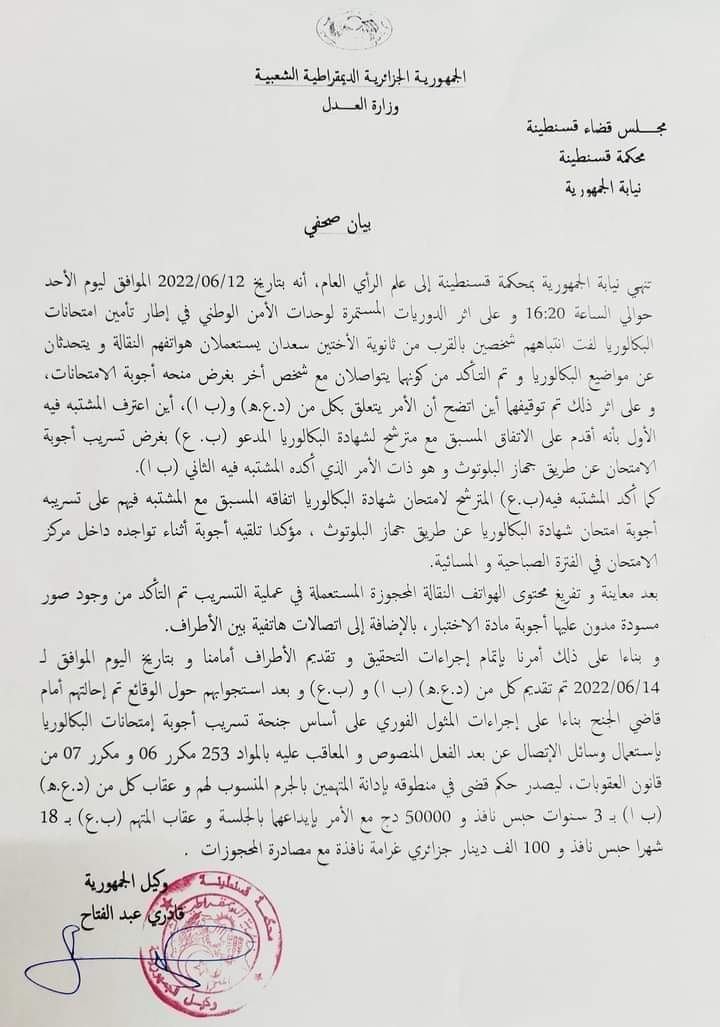 الجمهورية الجزائرية الديمقراطية الشعبية
وزارة العدل
مجلس قضاء قسنطينة
محكمة قسنطينة
نيابة الجمهورية
بيان صحفي
تنهي نيابة الجمهورية بمحكمة قسنطينة إلى علم الرأي العام، أنه بتاريخ 2022/06/12 الموافق ليوم الأحد
حوالي الساعة 16:20 و على اثر الدوريات المستمرة لوحدات الأمن الوطني في إطار تأمين امتحانات
البكالوريا لفت انتباههم شخصين بالقرب من ثانوية الأختين سعدان يستعملان هواتفهم النقالة و يتحدثان
عن مواضيع البكالوريا و تم التأكد من كونهما يتواصلان مع شخص أخر بغرض منحه أجوبة الامتحانات،
و على اثر ذلك تم توقيفهما أين اتضح أن الأمر يتعلق بكل من (د.ع.ه) و(ب ا)، أين اعترف المشتبه فيه
الأول بأنه أقدم على الاتفاق المسبق مع مترشح لشهادة البكالوريا المدعو (ب. ع) بغرض تسريب أجوبة
الامتحان عن طريق جهاز البلوتوث و هو ذات الأمر الذي أكده المشتبه فيه الثاني (ب ا).
كما أكد المشتبه فيه(ب.ع) المترشح لامتحان شهادة البكالوريا اتفاقه المسبق مع المشتبه فيهم على تسريبه
أجوبة امتحان شهادة البكالوريا عن طريق جهاز البلوتوث ، مؤكدا تلقيه أجوبة أثناء تواجده داخل مركز
الامتحان في الفترة الصباحية و المسائية.
بعد معاينة و تفريغ محتوى الهواتف النقالة المحجوزة المستعملة في عملية التسريب تم التأكد من وجود صور
مسودة مدون عليها أجوبة مادة الاختبار، بالإضافة إلى اتصالات هاتفية بين الأطراف.
و بناءا على ذلك أمرنا بإتمام إجراءات التحقيق و تقديم الأطراف أمامنا و بتاريخ اليوم الموافق لـ
2022/06/14 تم تقديم كل من (د.ع.ه) (ب ا) و (ب.ع) و بعد استجوابهم حول الوقائع تم إحالتهم أمام
قاضي الجنح بناءا على إجراءات المثول الفوري على أساس جنحة تسريب أجوبة إمتحانات البكالوريا
بإستعمال وسائل الإتصال عن بعد الفعل المنصوص و المعاقب عليه بالمواد 253 مكرر 06 و مكرر 07 من
قانون العقوبات، ليصدر حكم قضى في منطوقه بإدانة المتهمين بالجرم المنسوب لهم و عقاب كل من (د.ع.ه)
(ب ا) بـ 3 سنوات حبس نافذ و 50000 دج مع الأمر بإيداعهما بالجلسة و عقاب المتهم (ب.ع) بـ 18
شهرا حبس نافذ و 100 الف دينار جزائري غرامة نافذة مع مصادرة المحجوزات .
وكيل الجمهورية
قادري عبد الفتاح
محكمة قسنطينة
وكيل الجمهورية